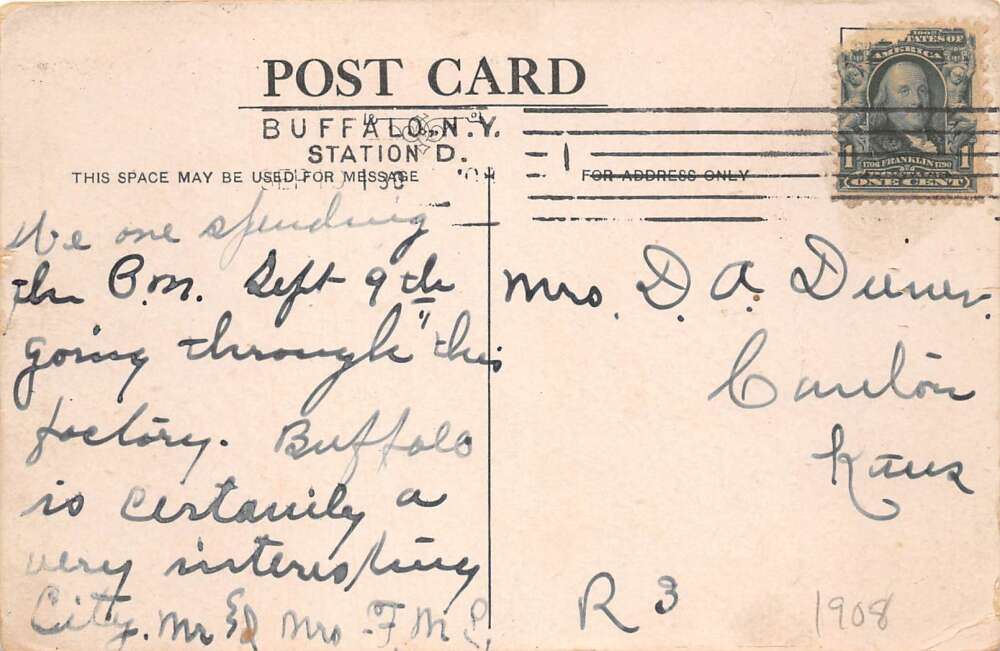 POST CARD
BUFFALO, N.Y.
STATION D.
THIS SPACE MAY BE USED FOR MESSAGE
FOR ADDRESS ONLY
1
STATES OF
AMERICA
1706 FRANKLIN 1790
1 1
POSTAGE
ONE CENT
We are spending
the P.M. Sept 9th
going through "this
factory. Buffalo
is certanily a
very interesting
City. Mr & Mrs F. M.
Mrs. D. A. Diener.
Canton
Kans
R 3
1908